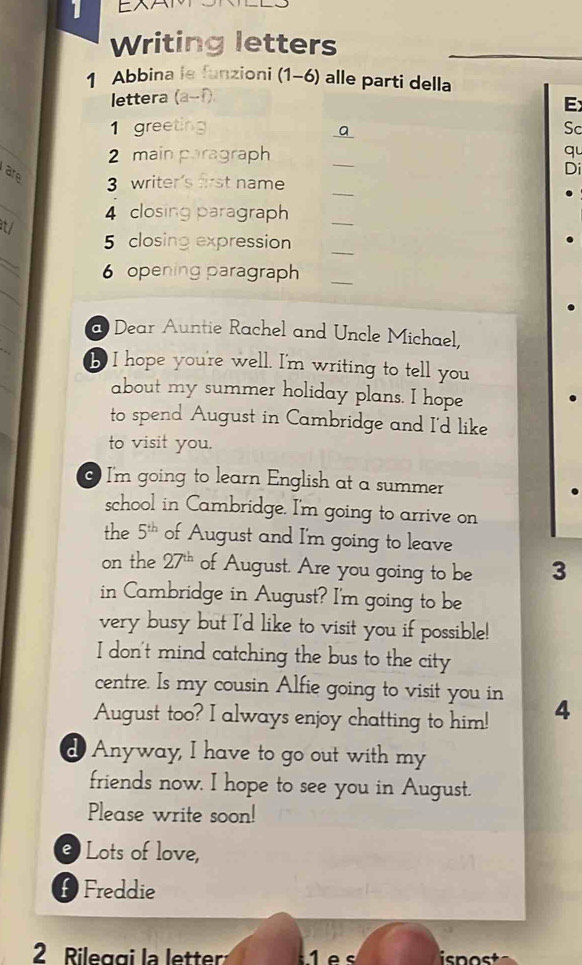 1
Writing letters
1 Abbina le funzioni (1–6) alle parti della
lettera (a–f).
1 greeting a
2 main paragraph __
3 writer's first name __
4 closing paragraph __
5 closing expression __
6 opening paragraph __
a Dear Auntie Rachel and Uncle Michael,
b I hope you're well. I'm writing to tell you
about my summer holiday plans. I hope
to spend August in Cambridge and I'd like
to visit you.
c I'm going to learn English at a summer
school in Cambridge. I'm going to arrive on
the 5th of August and I'm going to leave
on the 27th of August. Are you going to be
in Cambridge in August? I'm going to be
very busy but I'd like to visit you if possible!
I don't mind catching the bus to the city
centre. Is my cousin Alfie going to visit you in
August too? I always enjoy chatting to him!
d Anyway, I have to go out with my
friends now. I hope to see you in August.
Please write soon!
e Lots of love,
f Freddie
2 Rileggi la letter
are
Sc
qu
Di
3
4